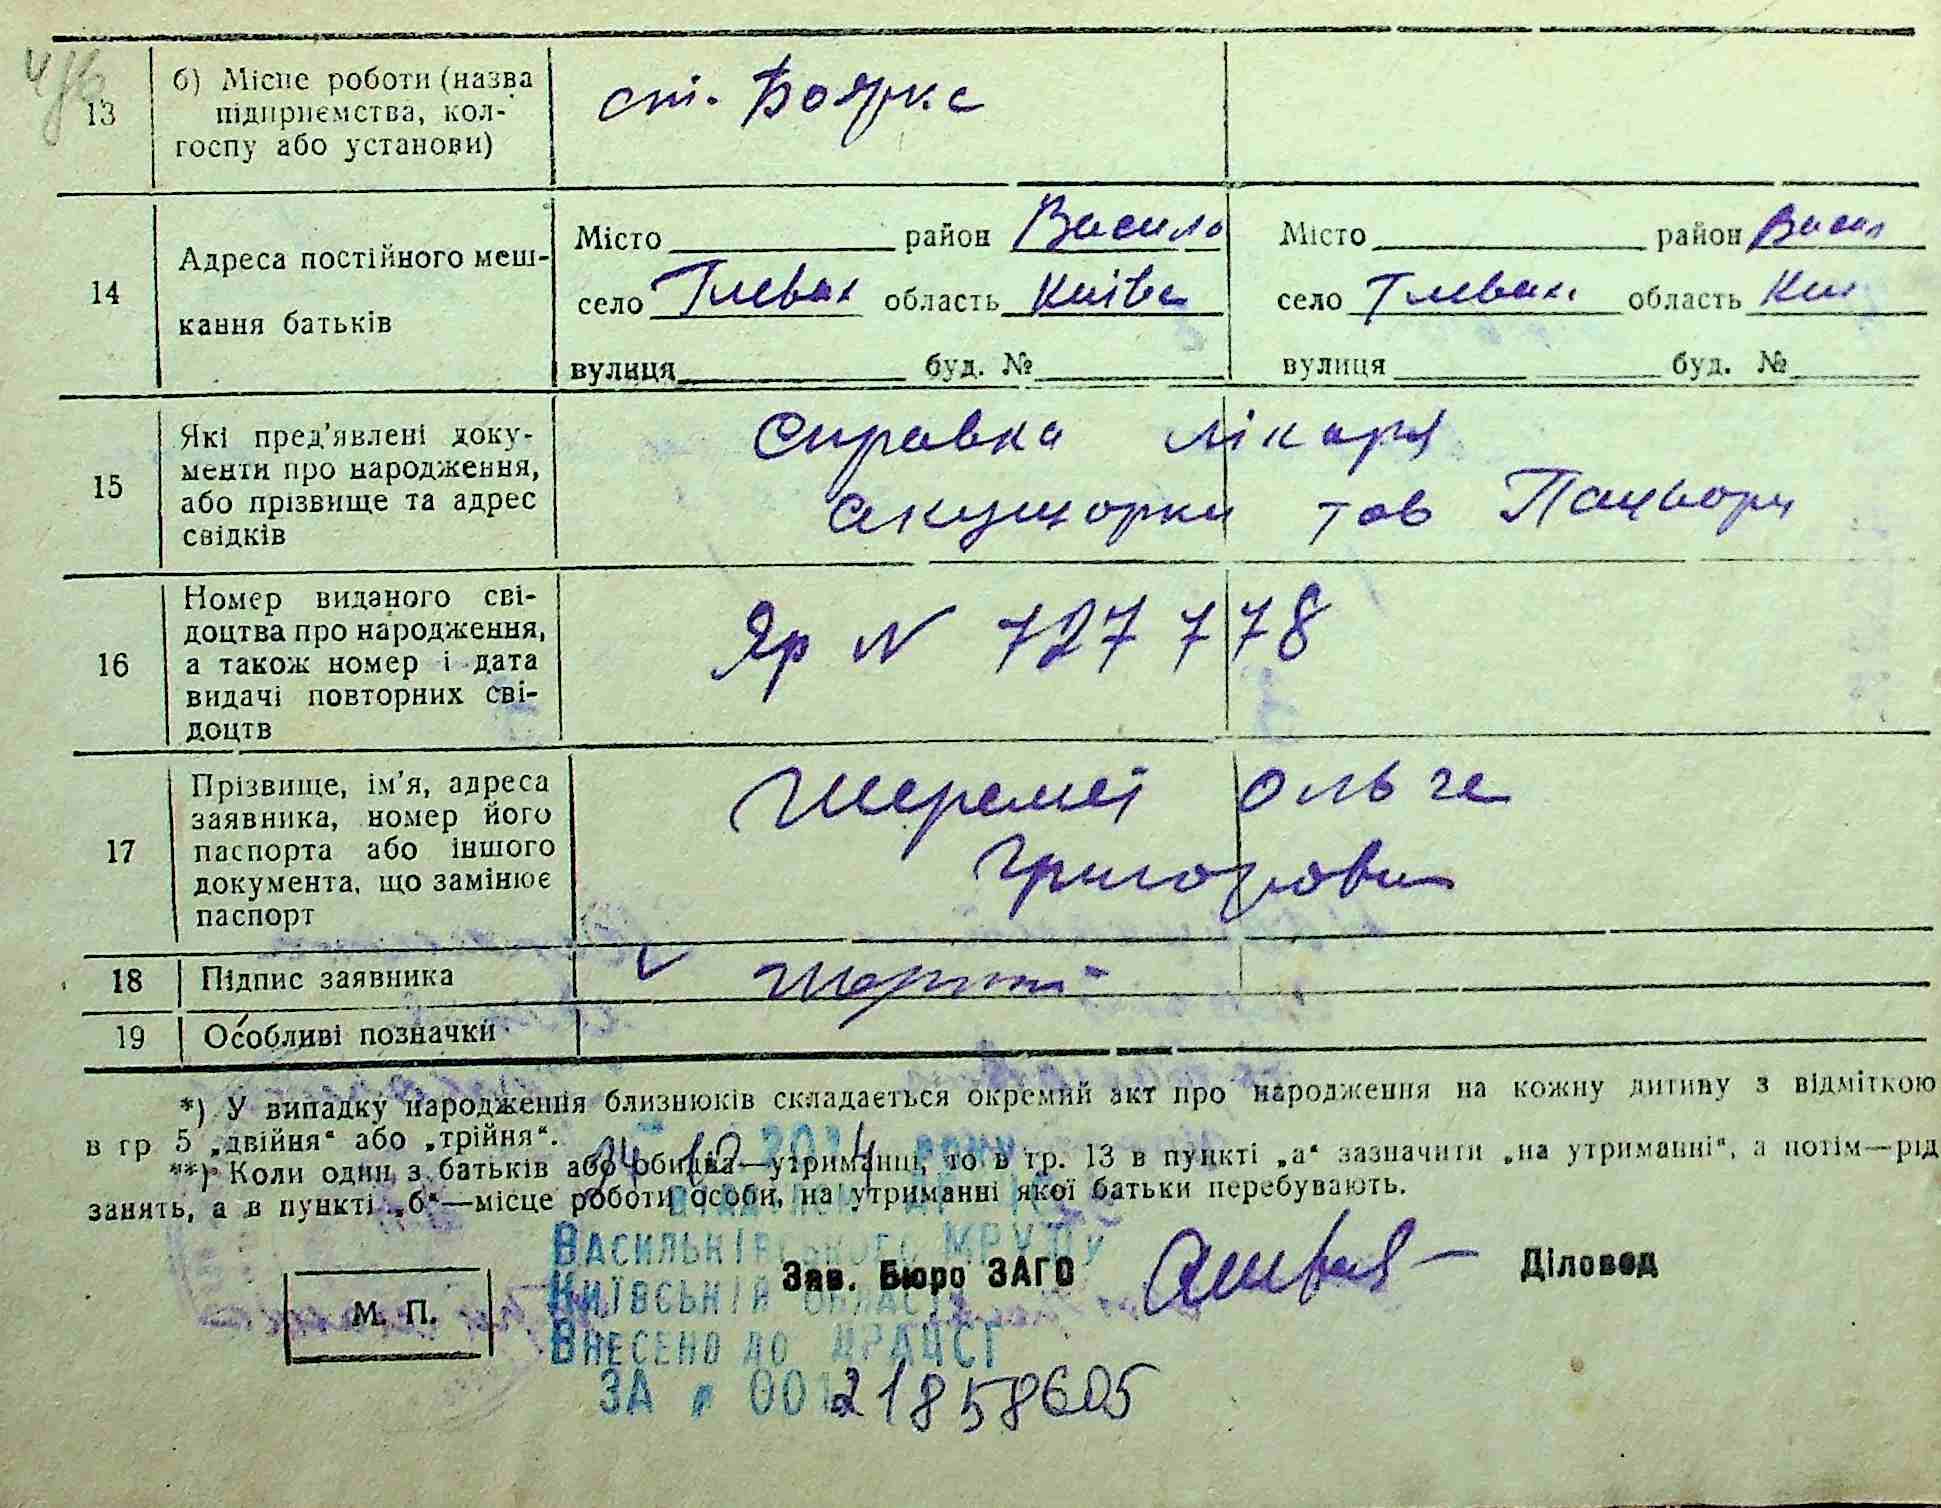 13 б) Місце роботи (назва підприємства, колгоспу або установи) ст. Боярка
14 Адреса постійного мешкання батьків
Місто район Васильк Місто район Васил
село Глеваха область Київс село Глеваха область Киї
вулиця буд. № вулиця буд. №
15 Які пред'явлені документи про народження, або прізвище та адрес свідків
Справка лікаря
акушорки тов
16 Номер виданого свідоцтва про народження, а також номер і дата видачі повторних свідоцтв
Яр N 727778
17 Прізвище, ім'я, адреса заявника, номер його паспорта або іншого документа, що замінює паспорт
Шеремет Ольга
Григоровн
18 Підпис заявника
19 Особливі позначки
*) У випадку народження близнюків складається окремий акт про народження на кожну дитину з відміткою
в гр 5 „двійня“ або „трійня“.
**) Коли один з батьків або обидва—утриманці, то в гр. 13 в пункті „а“ зазначити „на утриманні“, а потім—рід
занять, а в пункті „б“—місце роботи особи, на утриманні якої батьки перебувають.
Васильківського МРУЮ
Зав. Бюро ЗАГС Діловод
Київській області
М. П.
Внесено до ДРАЦСГ
ЗА № 00121858605